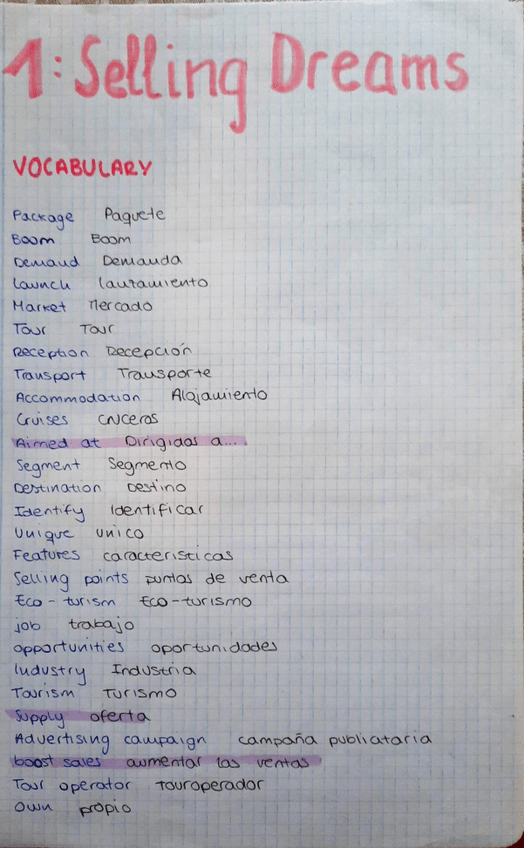 1: Selling Dreams
VOCABULARY
Package Paquete
Boom Boom
Demand Demanda
Launch lanzamiento
Market Mercado
Tour Tour
Reception Recepción
Transport Transporte
Accommodation Alojamiento
Cruises cruceros
Aimed at Dirigidas a...
Segment Segmento
Destination Destino
Identify Identificar
Unique unico
Features caracteristicas
Selling points puntos de venta
Eco-turism Eco-turismo
job trabajo
opportunities oportunidades
Industry Industria
Tourism Turismo
Supply oferta
Advertising campaign campaña publiataria
boost sales aumentar las ventas
Tour operator touroperador
Own propio